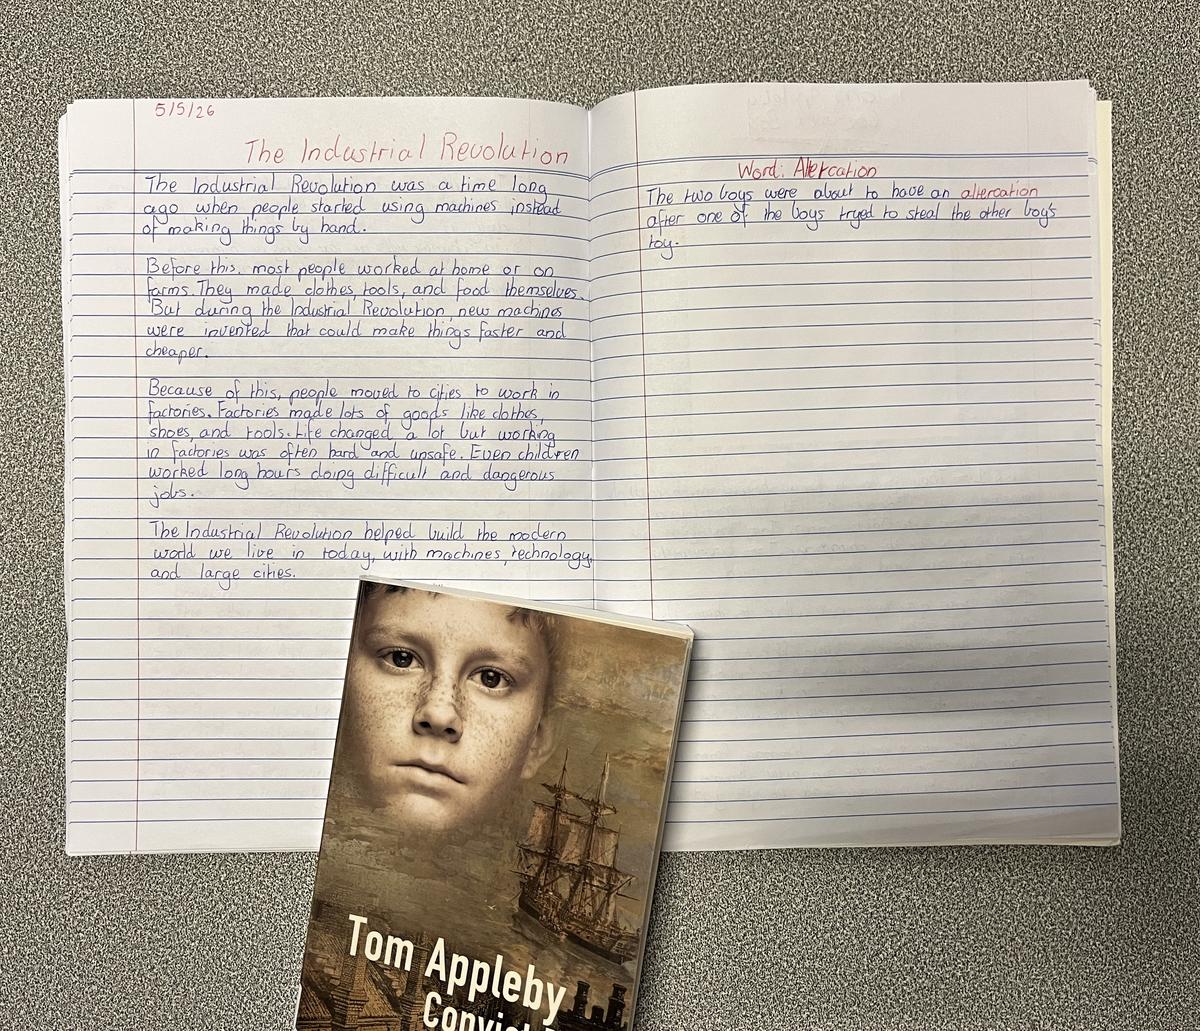 5/5/26
The Industrial Revolution
The Industrial Revolution was a time long
ago when people started using machines instead
of making things by hand.
Before this, most people worked at home or on
farms. They made clothes, tools, and food themselves.
But during the Industrial Revolution, new machines
were invented that could make things faster and
cheaper.
Because of this, people moved to cities to work in
factories. Factories made lots of goods like clothes,
shoes, and tools. Life changed a lot but working
in factories was often hard and unsafe. Even children
worked long hours doing difficult and dangerous
jobs.
The Industrial Revolution helped build the modern
world we live in today, with machines, technology,
and large cities.
Word: Altercation
The two boys were about to have an altercation
after one of the boys tryed to steal the other boy's
toy.
Tom Appleby
Convict